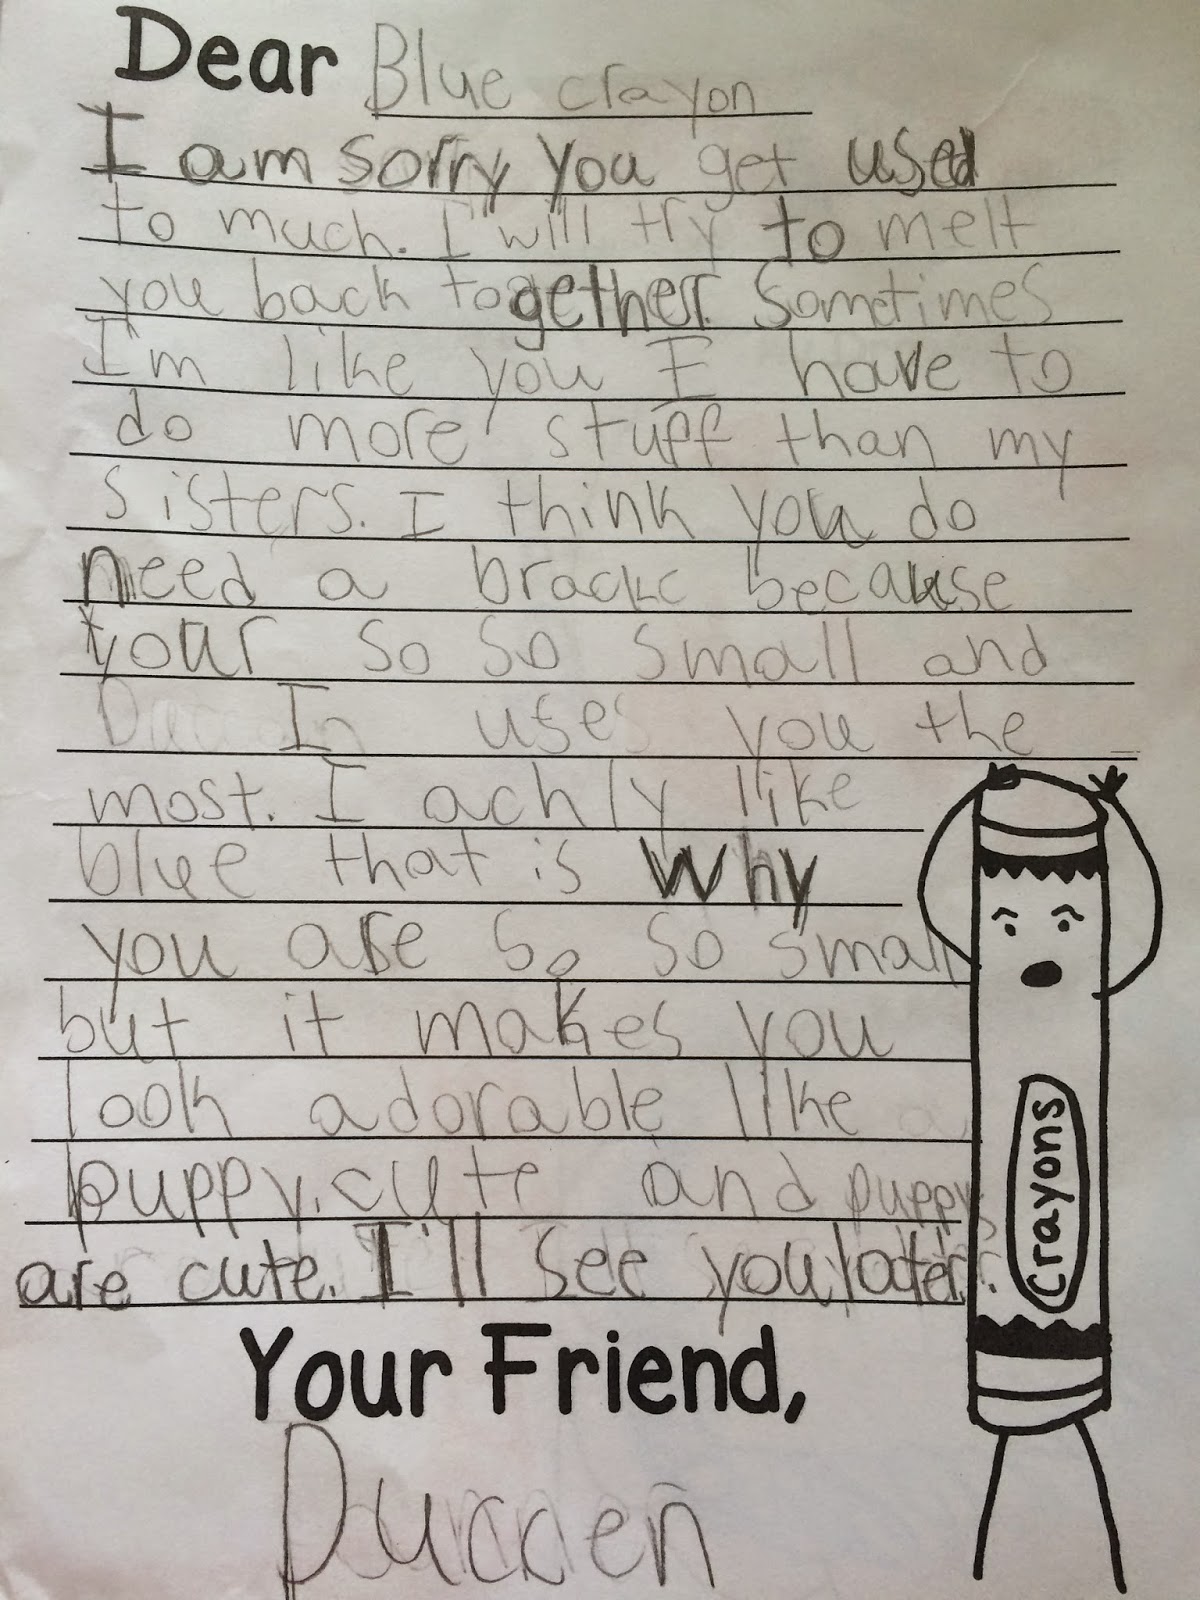 Dear Blue crayon
I am sorry you get used
to much. I will try to melt
you back together. Sometimes
I'm like you I have to
do more stuff than my
sisters. I think you do
need a brackc because
your so so small and
I use you the
most. I achly like
blue that is why
you are so so small
but it makes you
look adorable like a
puppy. cute and puppys
are cute. I'll see you later.
Your Friend,
Duccen
Crayons